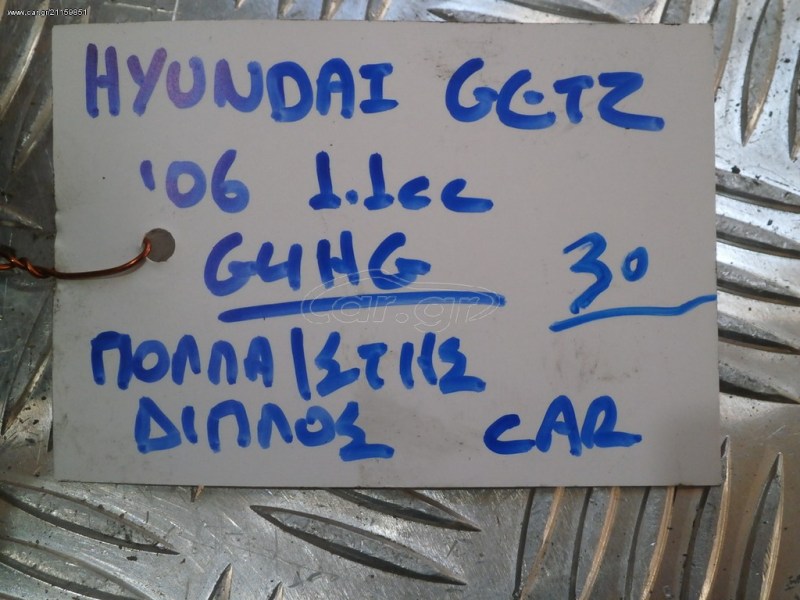 www.car.gr/21159851
HYUNDAI GETZ
'06 1.1cc
G4HG 30
car.gr
ΠΟΛΛΑ/ΣΤΗΣ
ΔΙΠΛΟΣ CAR